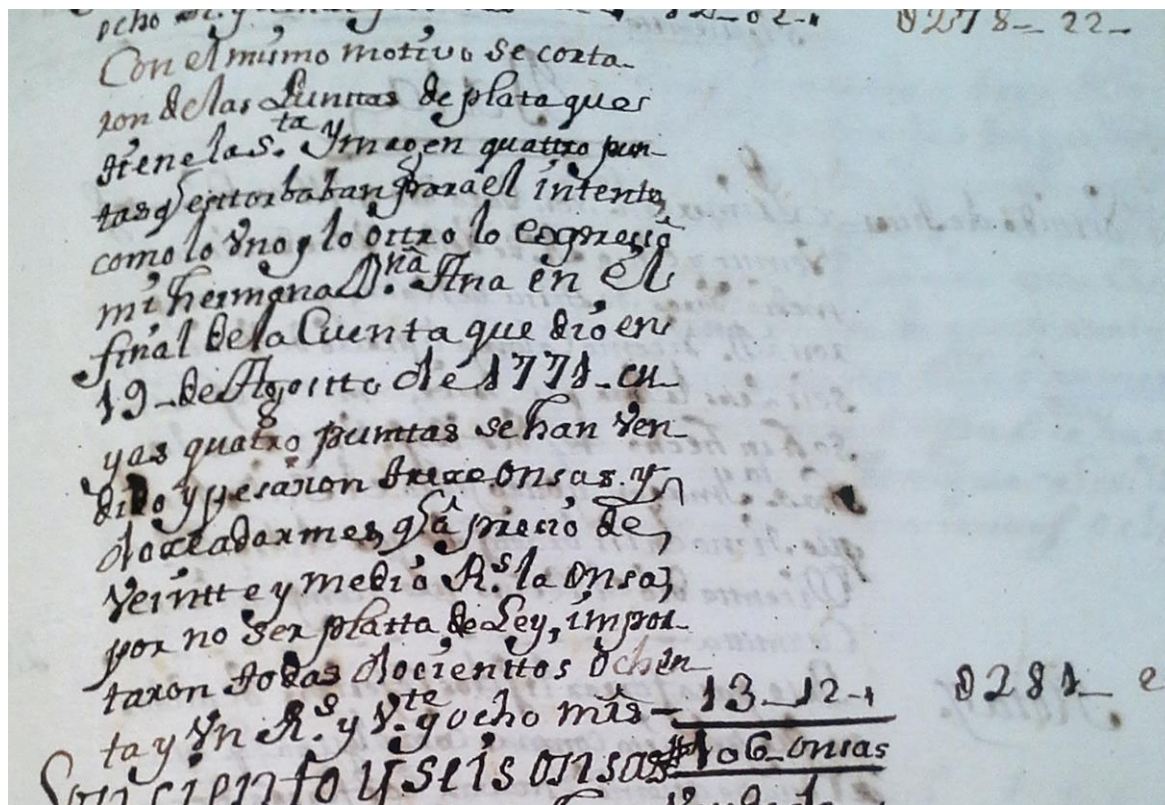 ocho 0278- 22-
Con el mismo motivo se corta-
ron de las Puntas de plata que
tiene la S.ta Ymagen quattro pun-
tas q estorbaban para el intento,
como lo Vno y lo ottro lo expresa
mi hermana D.na Ana en el
final de la Cuenta que dió en
19-de Agosto de 1771-cu-
yas quatro puntas se han Ven-
dido y pesaron trece onsas y
doce adarmes, q á precio de
Veintte y medio R.s la onsa,
por no ser platta de Ley, impor-
taron todas docienttos ochen
ta y Vn R.s y V.te y ocho mrs- 13-12- 0281-
Son ciento y seis onsas 106-onsas